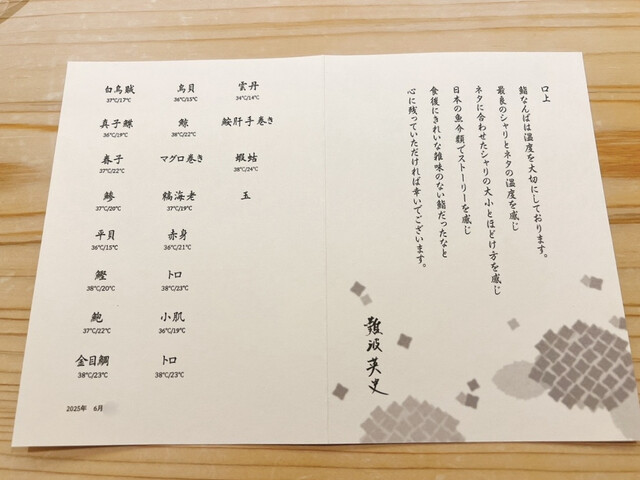 白烏賊
37℃/17℃
真子鰈
36℃/19℃
春子
37℃/22℃
鯵
37℃/20℃
平貝
36℃/15℃
鰹
38℃/20℃
鮑
37℃/22℃
金目鯛
38℃/23℃
鳥貝
36℃/15℃
鯨
38℃/22℃
マグロ巻き
縞海老
37℃/19℃
赤身
36℃/21℃
トロ
38℃/23℃
小肌
36℃/19℃
トロ
38℃/23℃
雲丹
34℃/14℃
鮟肝手巻き
蝦蛄
38℃/24℃
玉
2025年 6月
口上
鮨なんばは温度を大切にしております。
最良のシャリとネタの温度を感じ
ネタに合わせたシャリの大小とほどけ方を感じ
日本の魚今顔でストーリーを感じ
食後にきれいな雑味のない鮨だったなと
心に残っていただければ幸いでございます。
難波英史